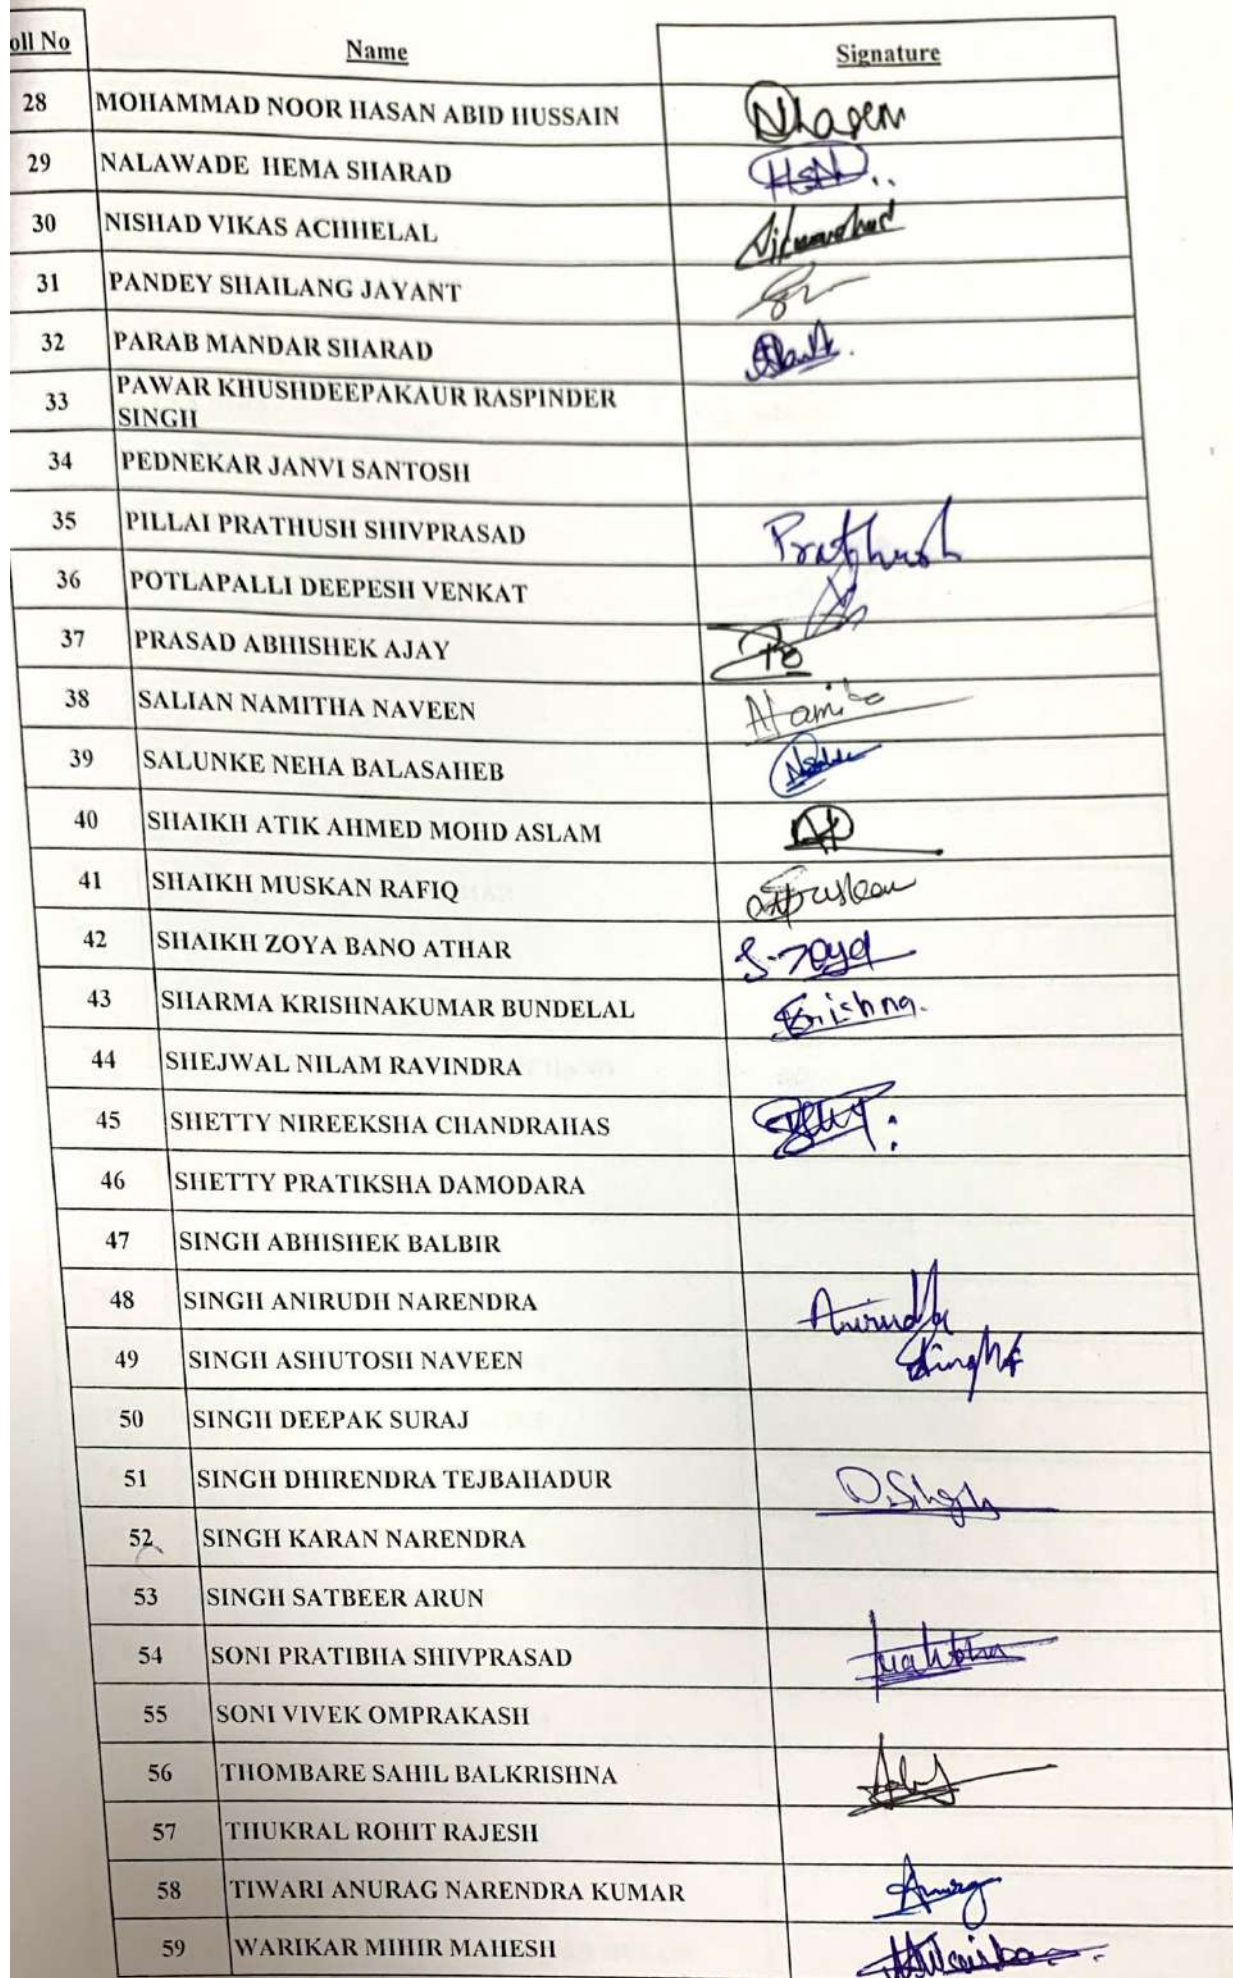 oll No Name Signature
28 MOHAMMAD NOOR HASAN ABID HUSSAIN NHasan
29 NALAWADE HEMA SHARAD HSN..
30 NISHAD VIKAS ACHHELAL
31 PANDEY SHAILANG JAYANT
32 PARAB MANDAR SHARAD
33 PAWAR KHUSHDEEPAKAUR RASPINDER
SINGH
34 PEDNEKAR JANVI SANTOSH
35 PILLAI PRATHUSH SHIVPRASAD Prathush
36 POTLAPALLI DEEPESH VENKAT
37 PRASAD ABHISHEK AJAY
38 SALIAN NAMITHA NAVEEN
39 SALUNKE NEHA BALASAHEB
40 SHAIKH ATIK AHMED MOHD ASLAM
41 SHAIKH MUSKAN RAFIQ
42 SHAIKH ZOYA BANO ATHAR S-zoya
43 SHARMA KRISHNAKUMAR BUNDELAL Krishna.
44 SHEJWAL NILAM RAVINDRA
45 SHETTY NIREEKSHA CHANDRAHAS
46 SHETTY PRATIKSHA DAMODARA
47 SINGH ABHISHEK BALBIR
48 SINGH ANIRUDH NARENDRA Anirudh
49 SINGH ASHUTOSH NAVEEN Singh
50 SINGH DEEPAK SURAJ
51 SINGH DHIRENDRA TEJBAHADUR D.Singh
52 SINGH KARAN NARENDRA
53 SINGH SATBEER ARUN
54 SONI PRATIBHA SHIVPRASAD
55 SONI VIVEK OMPRAKASH
56 THOMBARE SAHIL BALKRISHNA
57 THUKRAL ROHIT RAJESH
58 TIWARI ANURAG NARENDRA KUMAR Anurag
59 WARIKAR MIHIR MAHESH